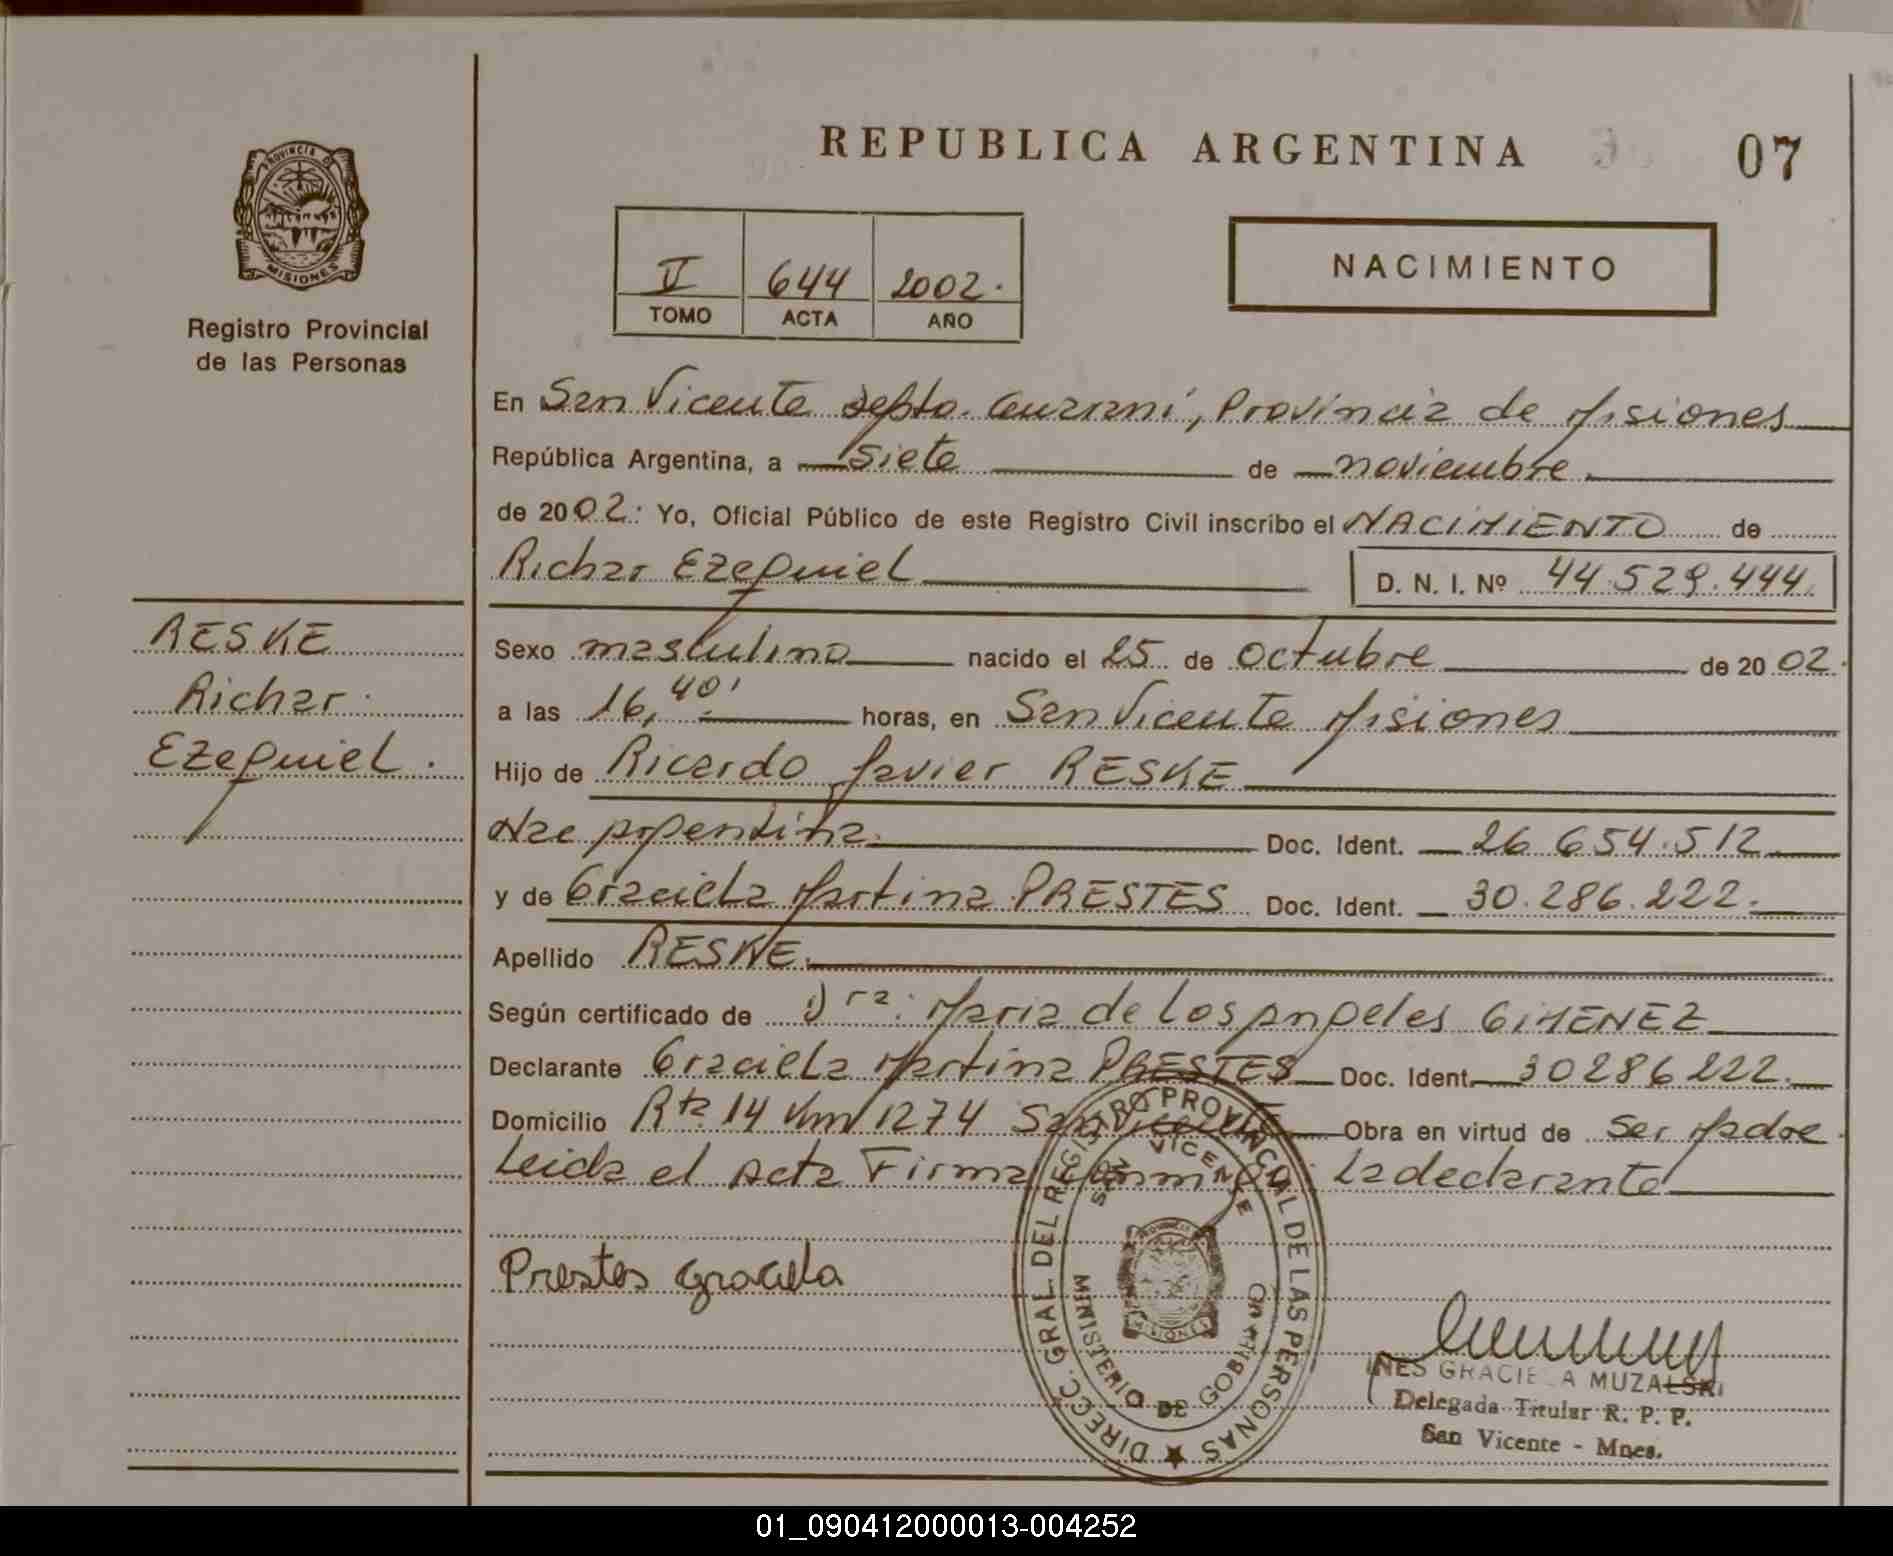 REPUBLICA ARGENTINA
07
PROVINCIA DE
MISIONES
Registro Provincial
de las Personas
V 644 2002.
TOMO ACTA AÑO
NACIMIENTO
En San Vicente Depto. Guarani, Provincia de Misiones
República Argentina, a siete de noviembre
de 2002: Yo, Oficial Público de este Registro Civil inscribo el NACIMIENTO de
Richar Ezequiel D. N. I. Nº 44.529.444.
RESKE
Richar
Ezequiel.
Sexo masculino nacido el 25 de Octubre de 2002.
a las 16,40' horas, en San Vicente Misiones
Hijo de Ricardo Javier RESKE
Nac Argentina. Doc. Ident. 26.654.512
y de Graciela Martina PRESTES Doc. Ident. 30.286.222.
Apellido RESKE.
Según certificado de Dra: Maria de Los Angeles GIMENEZ
Declarante Graciela Martina PRESTES Doc. Ident. 30286222.
Domicilio Rta 14 Km 1274 San Vicente Obra en virtud de ser Madre.
Leida el Acta Firma conmigo: La declarante
Prestes Graciela
DIRECC. GRAL. DEL REGISTRO PROVINCIAL DE LAS PERSONAS
SAN VICENTE
MINISTERIO DE GOBIERNO
MISIONES
INES GRACIELA MUZALSKI
Delegada Titular R. P. P.
San Vicente - Mnes.
01_090412000013-004252